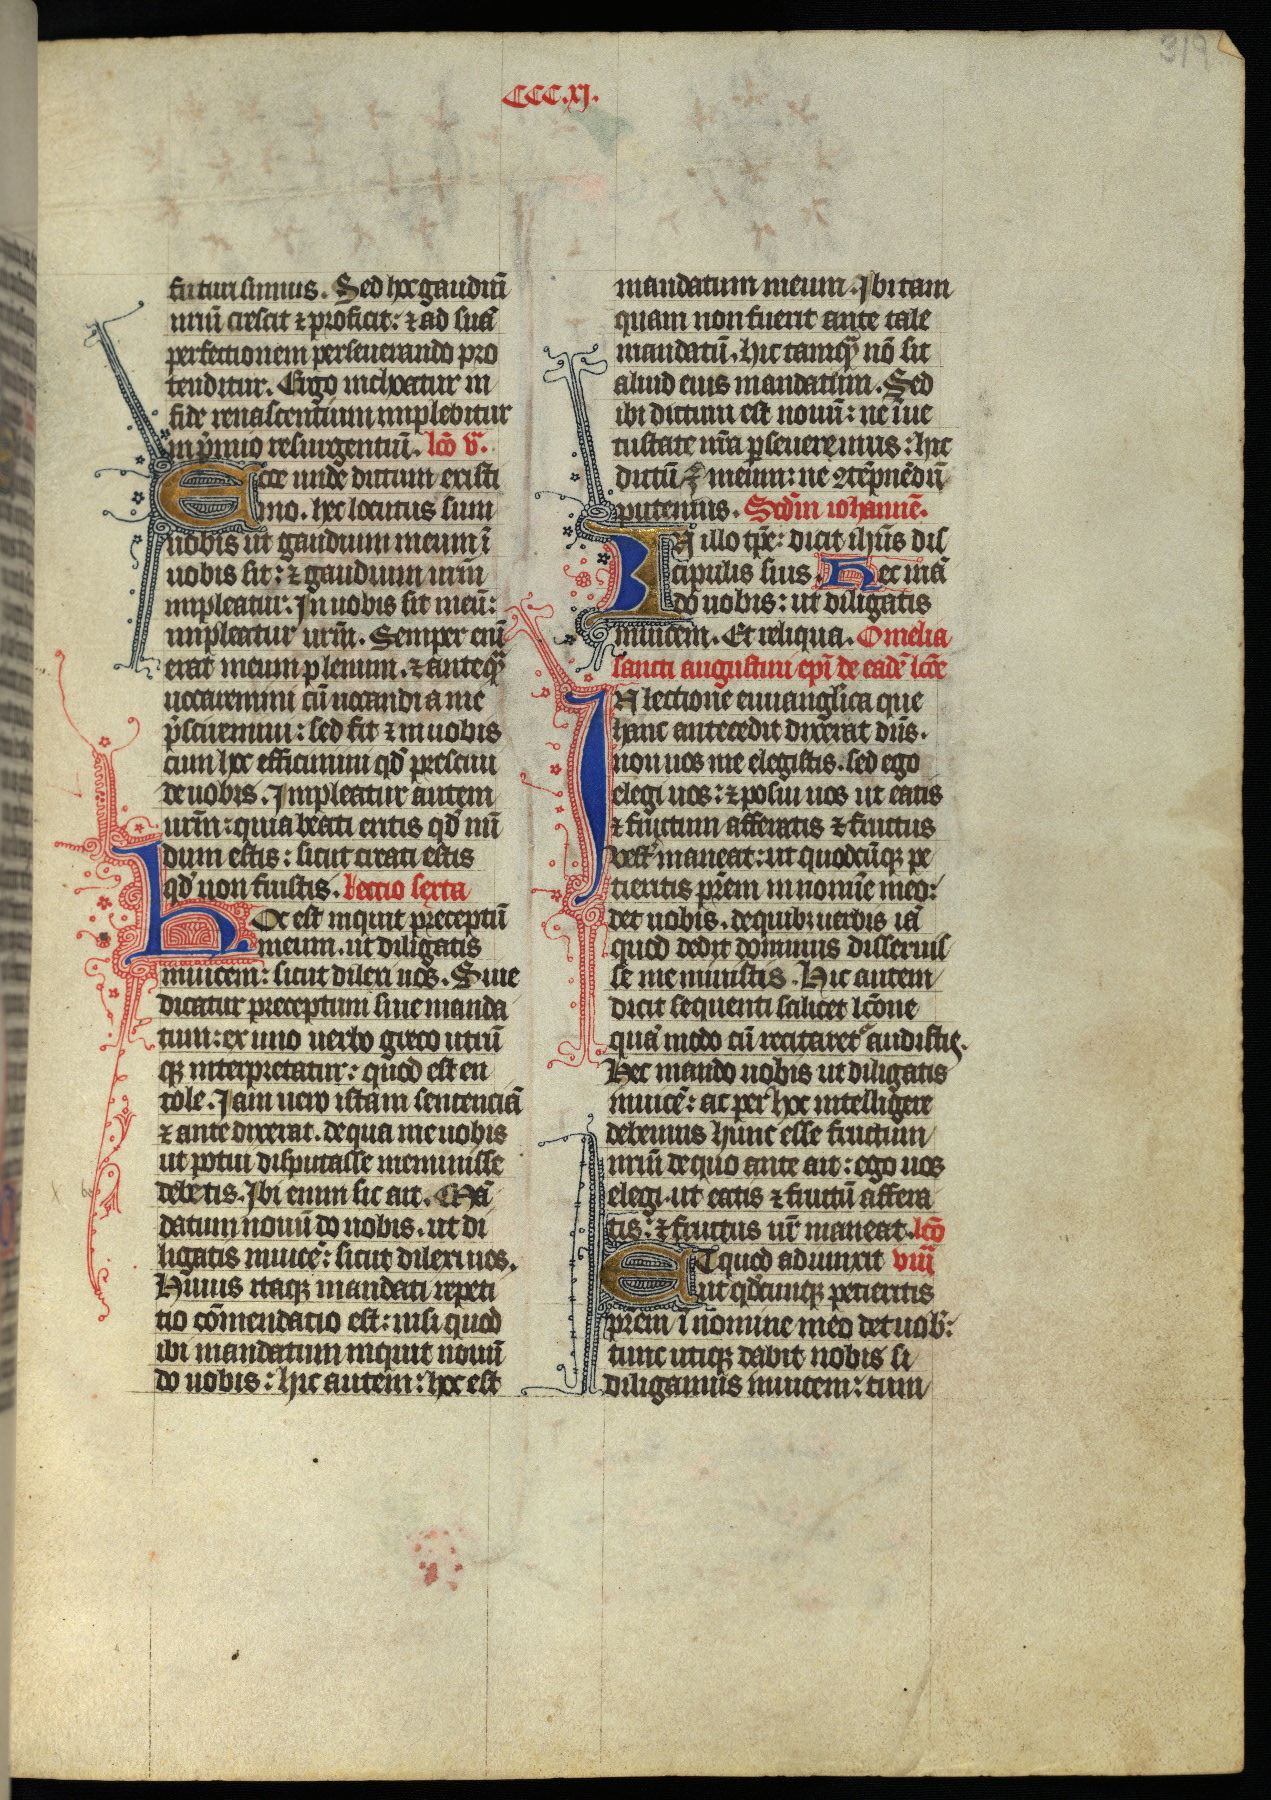 319
CCC.xj.
futuri simus. Sed hoc gaudiū
nr̄iu crescit ⁊ proficit: ⁊ ad suā
perfectionem perseuerando pro
tenditur. Ergo inchoatur in
fide renascentium implebitur
in p̄mio resurgentiū. lcō v͛.
Ecce unde dictum existi
mo. hec locutus sum
uobis ut gaudium meum ī
uobis sit: ⁊ gaudium ur̄m
impleatur. In uobis sit meū:
impleatur ur̄m. Semper eni
erat meum plenum. ⁊ anteq̄ꝫ
uocaremini cū uocandi a me
p̄scieremini: sed fit ⁊ in uobis
cum hoc efficimini qd̓ presciui
de uobis. Impleatur autem
ur̄m: quia beati eritis qd̓ nū
dum estis: sicut creati estis
qd̓ non fuistis. Leccio sexta
Hoc est inquit preceptū
meum. ut diligatis
inuicem: sicut dilexi uos. Siue
dicatur preceptum siue manda
tum: ex uno uerbo greco utrū
qꝫ interpretatur: quod est en
tole. Iam uero istam sentenciā
⁊ ante dixerat. de qua me uobis
ut potui disputasse meminisse
debetis. Ibi enim sic ait. Mā
datum nouū do nobis. ut di
ligatis inuicē: sicut dilexi uos.
Huius itaqꝫ mandati repeti
tio cōmendatio est: nisi quod
ibi mandatum inquit nouū
do uobis: hic autem: hoc est
mandatum meum. Ibi tam
quam non fuerit ante tale
mandatū, hic tamqꝫ nō sit
aliud eius mandatum. Sed
ibi dictum est nouū: ne īue
tustate nr̄a perseueremus: hic
dictū ē meum: ne ɔtēpnēdū
putemus. Scd̄m iohannē.
In illo tp̄e: dicit ihūs dis
cipulis suis. Hec mā
do uobis: ut diligatis
inuicem. Et reliqua. Omelia
sancti augustini ep̄i de eadē lc̄oe
In lectione euuanglica que
hanc antecedit dixerat dn̄s.
non uos me elegistis. sed ego
elegi uos: ⁊ posui uos ut eatis
⁊ fructum afferatis ⁊ fructus
vest͛ maneat: ut quodcūqꝫ pe
tieritis pr̄em in nomīe meo:
det uobis. de quibꝫ uerbis iā
quod dedit dominus disseruis
se me ministis. Hic autem
dicit sequenti scilicet lc̄one
quā modo cū recitaret͛ audistis.
Hec mando uobis ut diligatis
inuicē: ac per hoc intelligere
debemus hunc esse fructum
nr̄iu de quo ante ait: ego uos
elegi. ut eatis ⁊ fructū affera
tis: ⁊ fructus ur̄ maneat. lcō
Et quod adiunxit viii
ut qd̓cumqꝫ petieritis
pr̄em ī nomine meo det uob̄:
tunc utiqꝫ dabit nobis si
diligamus inuicem: cum